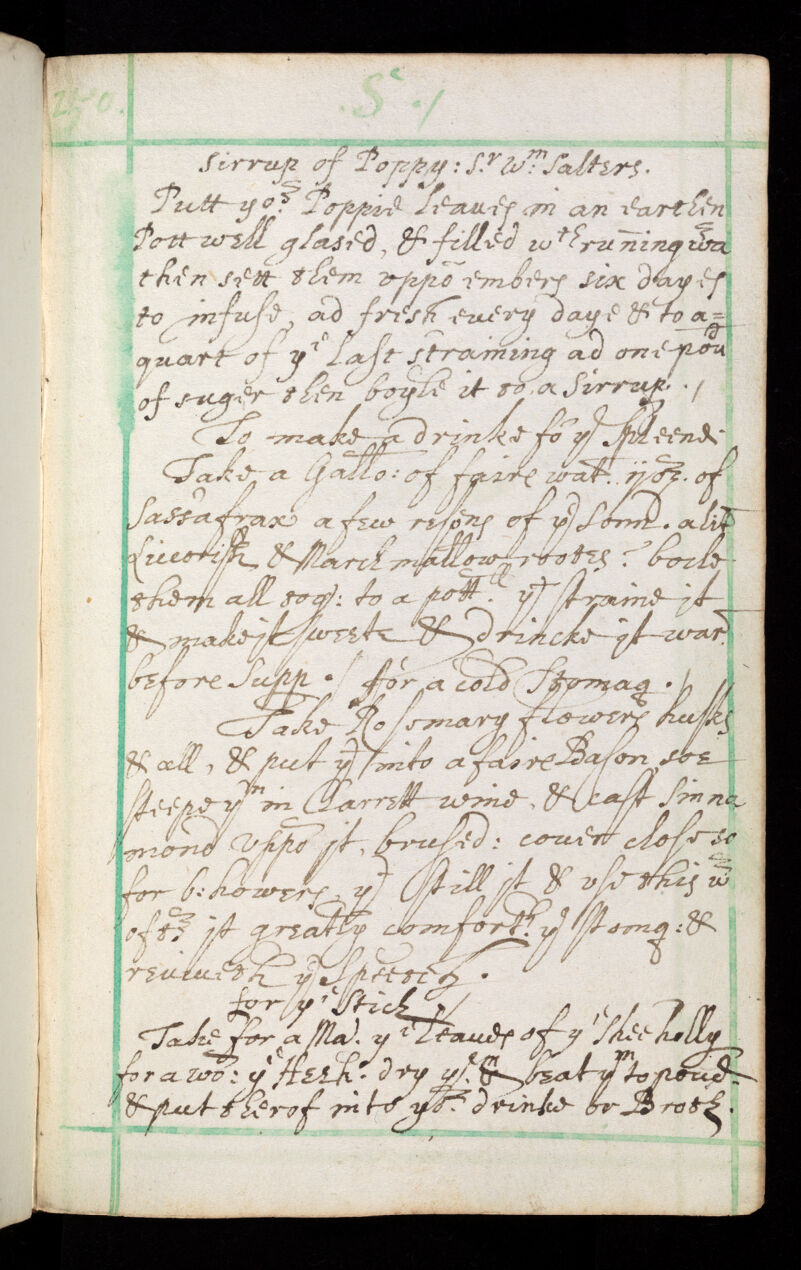 250. .S./
Sirrup of Poppy: Sr Wm Salters.
Putt yor Poppie leaues in an earthen
Pott well glased, & filled wth runing wa
then sett them uppo embers six dayes
to infuse, ad fresh euery daye & to a=
quart of ye last straining ad one poud
of suger then boyle it to a Sirrup ./
To make a drinke fo ye Spleene.
Take a Gallo: of faire wat. ij oz. of
Sassafrax a few resons of ye Sonn. a litt
Licorish & March mallow rootes: boile
them all tog: to a pott: yn straine it
& make it sweete & drincke it war.
before Supp ./ for a cold Stomaq ./
Take Rosemary flowers husks
& all, & put ym into a faire Bason soe
steepe ym in Clarrett wine, & cast Sinna
mond uppo it, brused: couer close so
for 6: howers, yn still it & use this w
oft: it greatly comforth. ye stomq: &
reuiueth ye Speetes.
for ye Stich ./
Take for a Ma. ye leaues of ye Shee holly
for a wo: ye Hee h: dry ym & beat ym to poud.
& put therof into yor drinke or Broth.